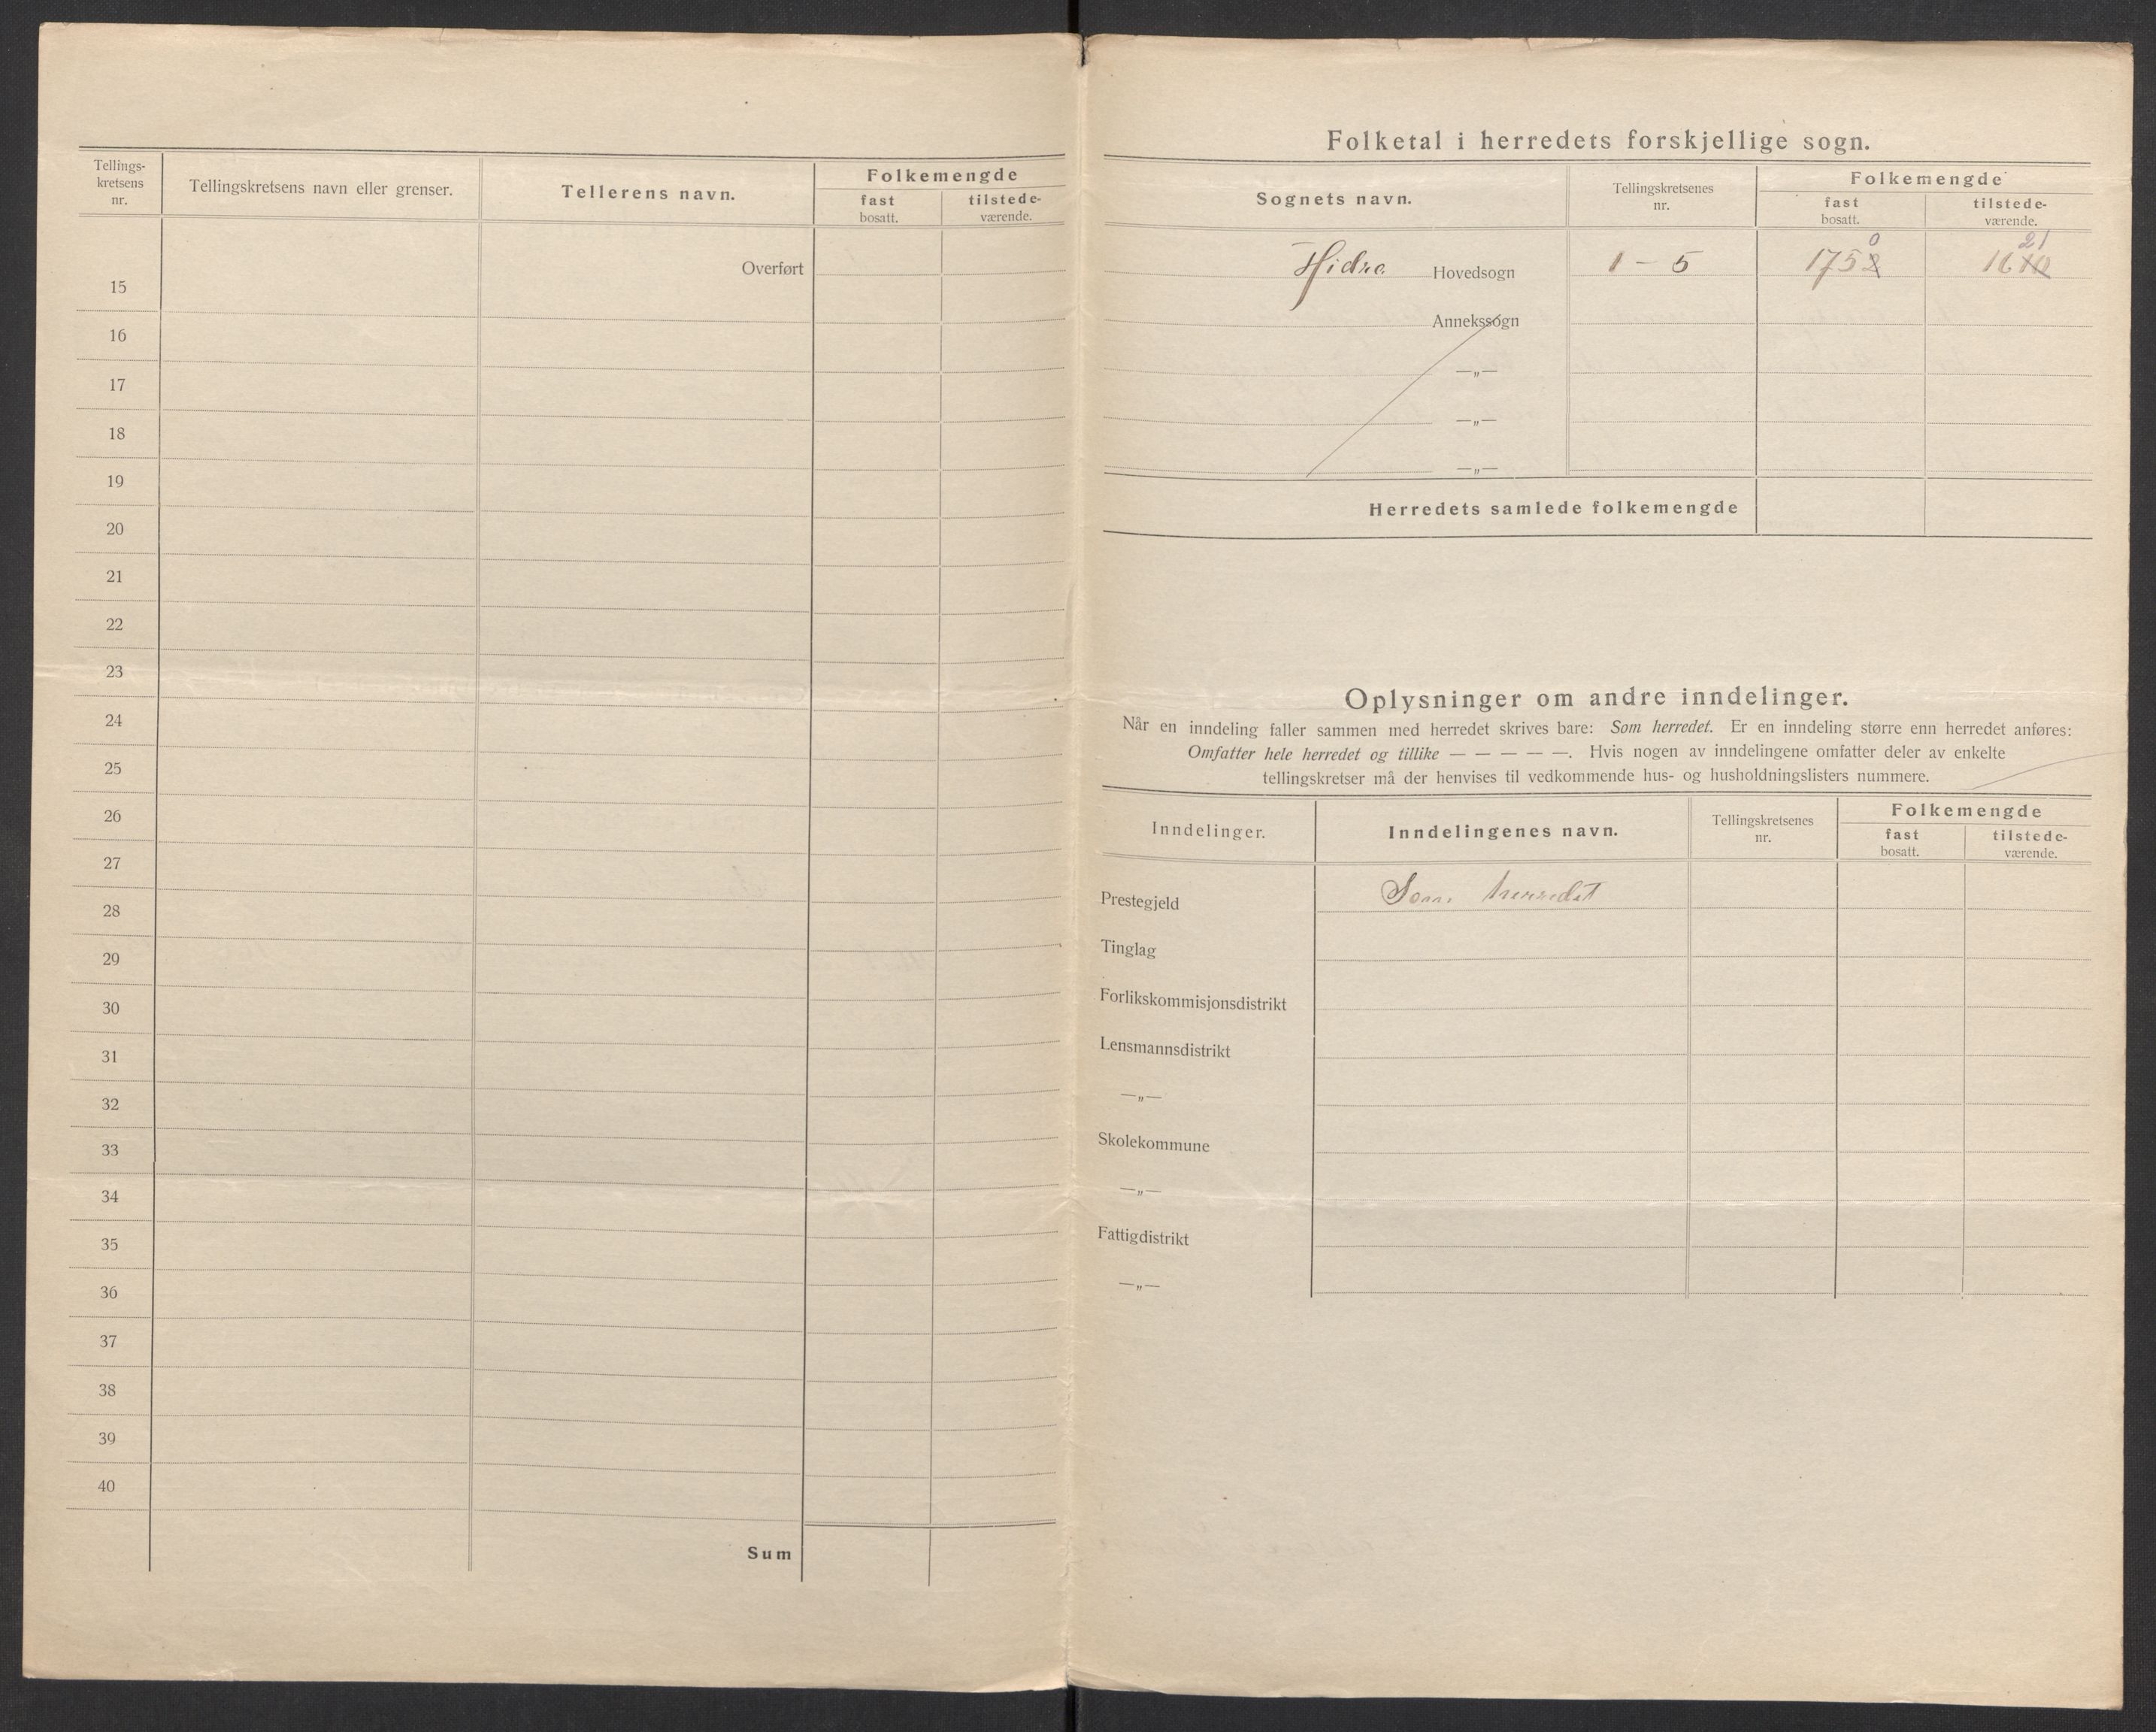 Tellings-
kretsens
nr.
Tellingskretsens navn eller grenser.
Tellerens navn.
Folkemengde
fast
bosatt.
tilstede-
værende.
Overført
15
16
17
18
19
20
21
22
23
24
25
26
27
28
29
30
31
32
33
34
35
36
37
38
39
40
Sum
Folketal i herredets forskjellige sogn.
Sognets navn.
Tellingskretsenes
nr.
Folkemengde
fast
bosatt.
tilstede-
værende.
0 21
Hidra Hovedsogn 1 - 5 1752 1610
Annekssogn
—„—
—„—
—„—
Herredets samlede folkemengde
Oplysninger om andre inndelinger.
Når en inndeling faller sammen med herredet skrives bare: Som herredet. Er en inndeling større enn herredet anføres:
Omfatter hele herredet og tillike — — — — —. Hvis nogen av inndelingene omfatter deler av enkelte
tellingskretser må der henvises til vedkommende hus- og husholdningslisters nummere.
Inndelinger.
Inndelingenes navn.
Tellingskretsenes
nr.
Folkemengde
fast
bosatt.
tilstede-
værende.
Prestegjeld Som herredet
Tinglag
Forlikskommisjonsdistrikt
Lensmannsdistrikt
—„—
Skolekommune
—„—
Fattigdistrikt
—„—